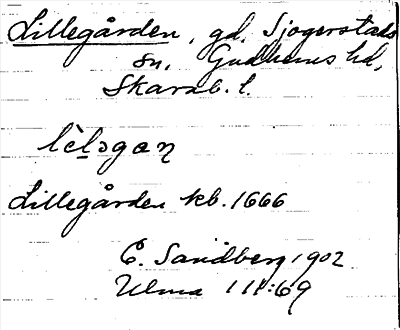 Lillegården, gd, Sjogerstads
sn, Gudhems hd,
Skarab. l.
lìləgɑn̥
Lillegården kb. 1666
E. Sandberg 1902
Ulma 111:69